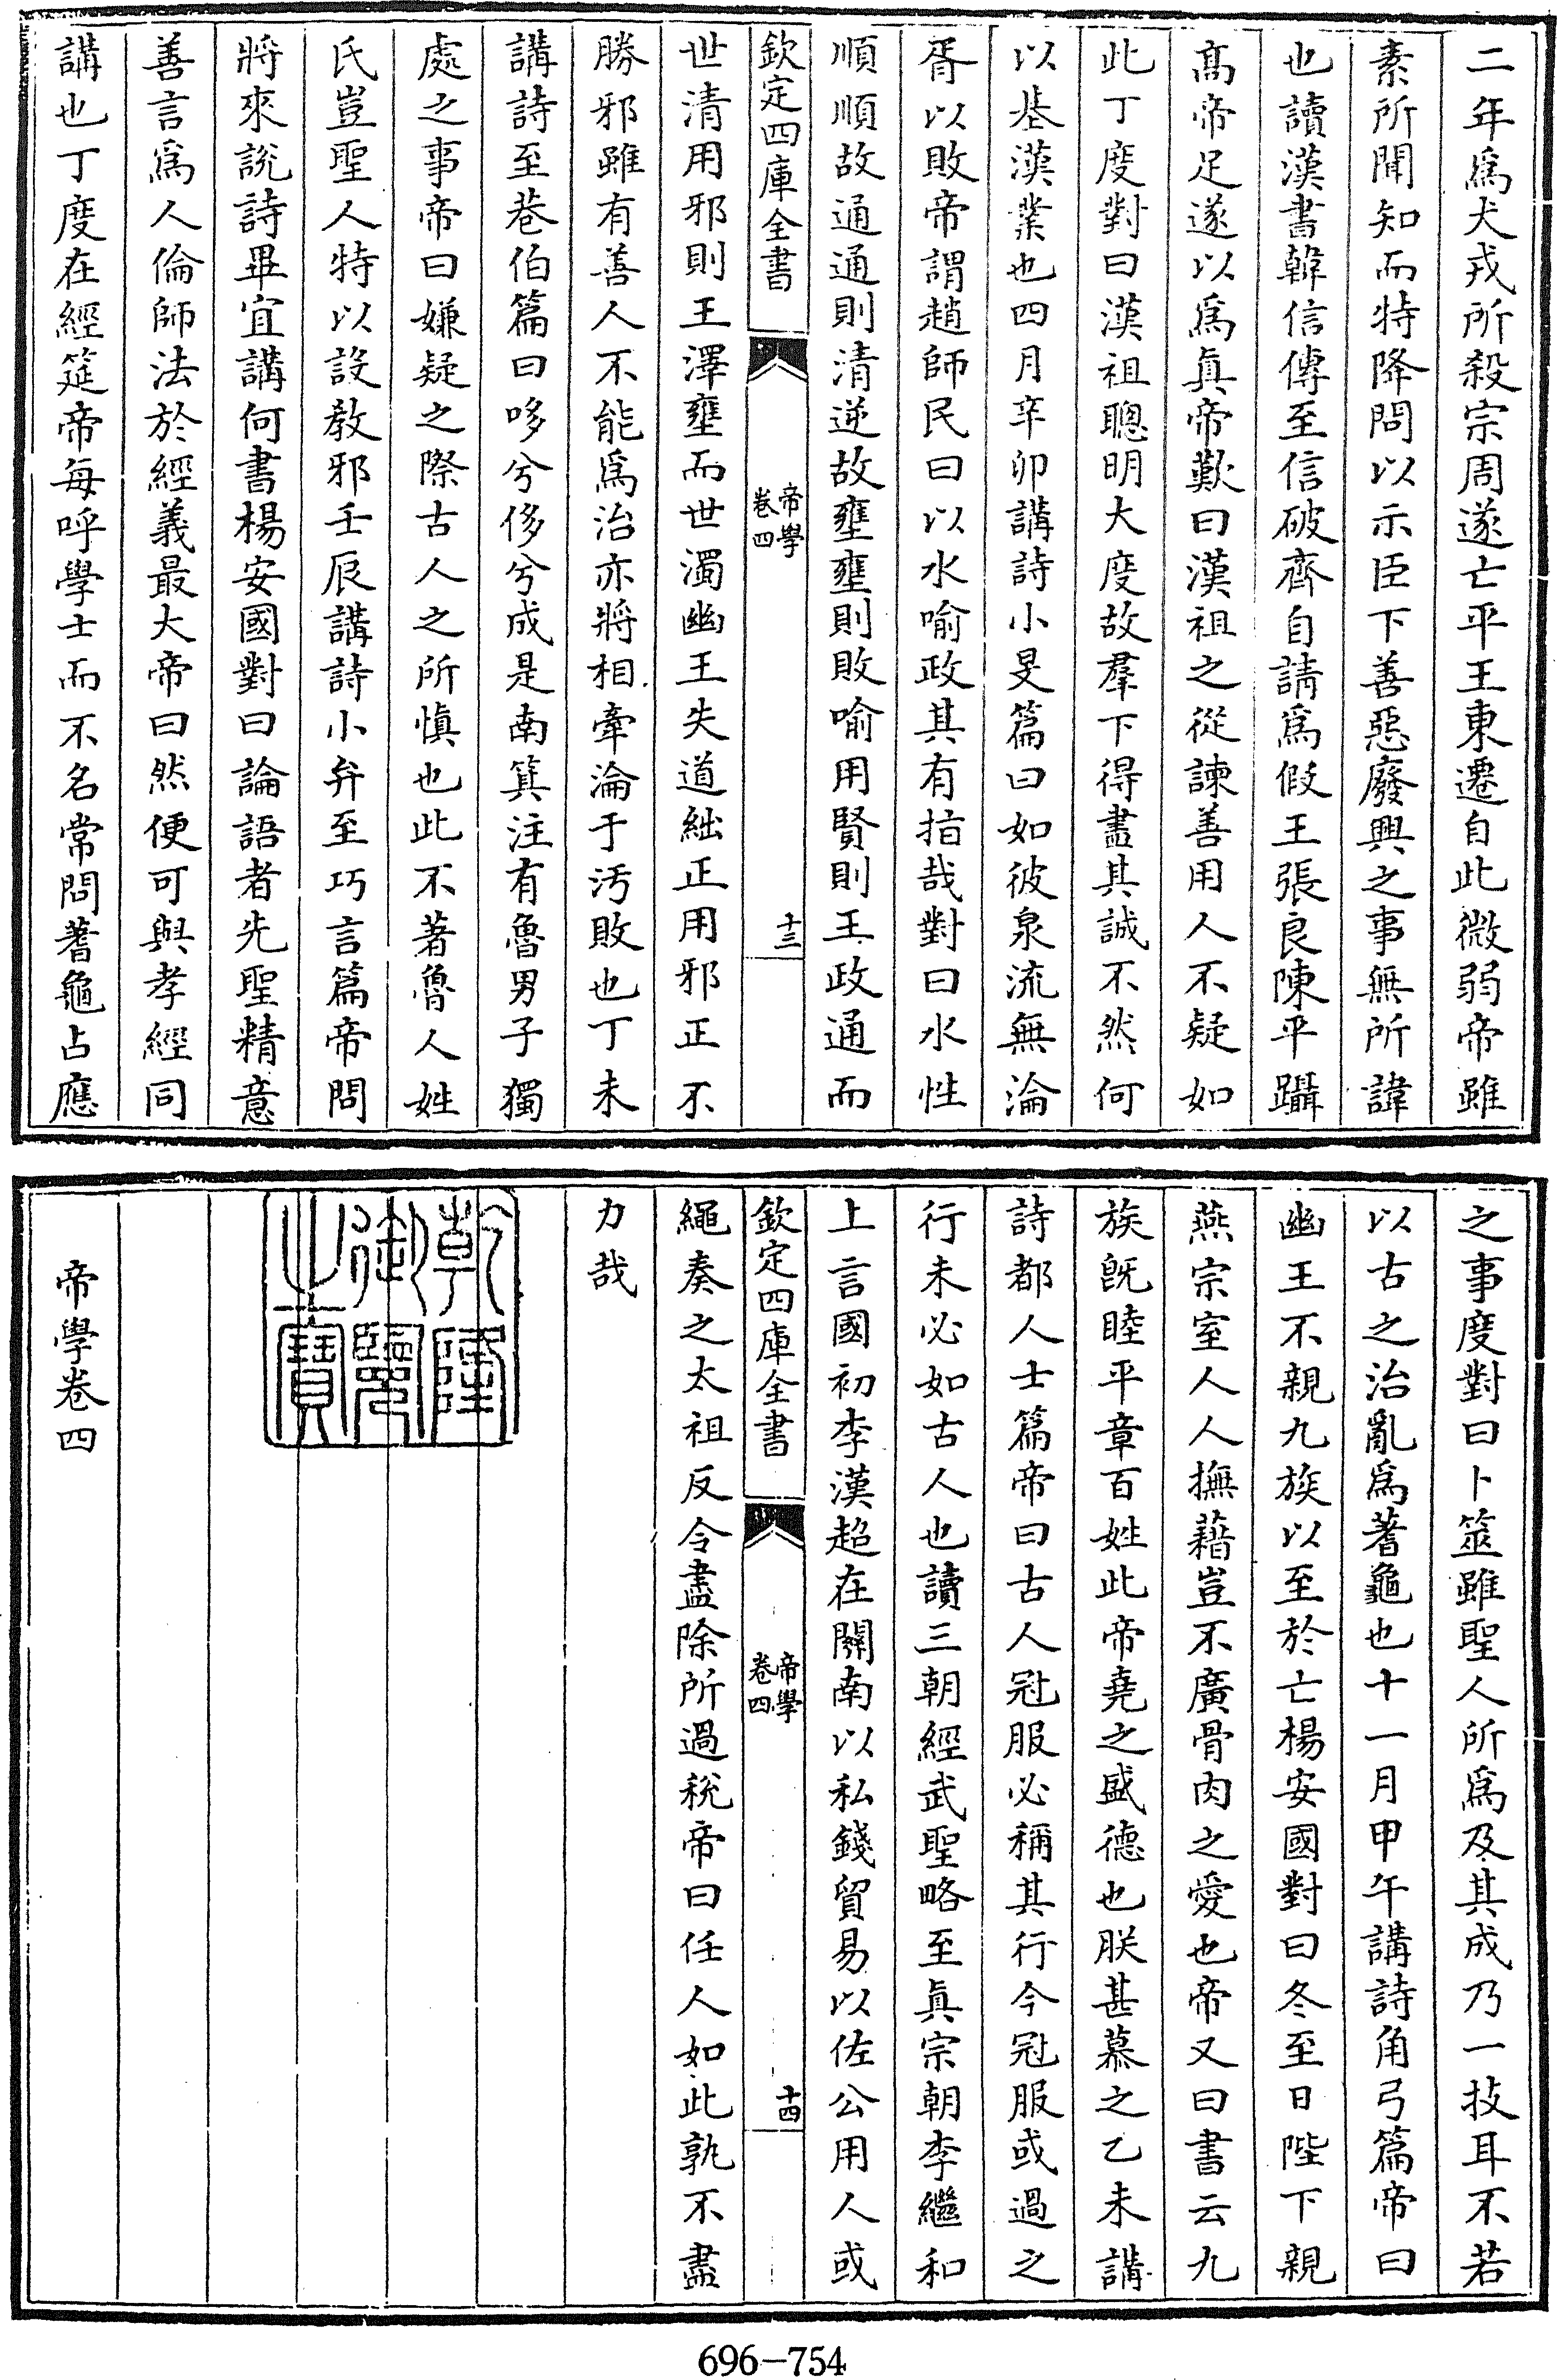 二年爲犬戎所殺宗周遂亡平王東遷自此微弱帝雖
素所聞知而特降問以示臣下善惡廢興之事無所諱
也讀漢書韓信傳至信破齊自請爲假王張良陳平躡
髙帝足遂以爲眞帝歎曰漢祖之從諫善用人不疑如
此丁度對曰漢祖聰明大度故羣下得盡其誠不然何
以基漢業也四月辛卯講詩小旻篇曰如彼泉流無淪
胥以敗帝謂趙師民曰以水喻政其有指哉對曰水性
順順故通通則清逆故壅壅則敗喻用賢則王政通而
欽定四庫全書
帝學
卷四
十三
世清用邪則王澤壅而世濁幽王失道絀正用邪正不
勝邪雖有善人不能爲治亦將相牽淪于汚敗也丁未
講詩至巷伯篇曰哆兮侈兮成是南箕注有魯男子獨
處之事帝曰嫌疑之際古人之所愼也此不著魯人姓
氏豈聖人特以設教邪壬辰講詩小弁至巧言篇帝問
將來說詩畢宜講何書楊安國對曰論語者先聖精意
善言爲人倫師法於經義最大帝曰然便可與孝經同
講也丁度在經筵帝每呼學士而不名常問蓍龜占應
之事度對曰卜筮雖聖人所爲及其成乃一技耳不若
以古之治亂爲蓍龜也十一月甲午講詩角弓篇帝曰
幽王不親九族以至於亡楊安國對曰冬至日陛下親
燕宗室人人撫藉豈不廣骨肉之愛也帝又曰書云九
族旣睦平章百姓此帝堯之盛德也朕甚慕之乙未講
詩都人士篇帝曰古人冠服必稱其行今冠服或過之
行未必如古人也讀三朝經武聖略至眞宗朝李繼和
上言國初李漢超在關南以私錢貿易以佐公用人或
欽定四庫全書
帝學
卷四
十四
繩奏之太祖反令盡除所過稅帝曰任人如此孰不盡
力哉
乾隆
御覽
之寶
帝學卷四
696-754